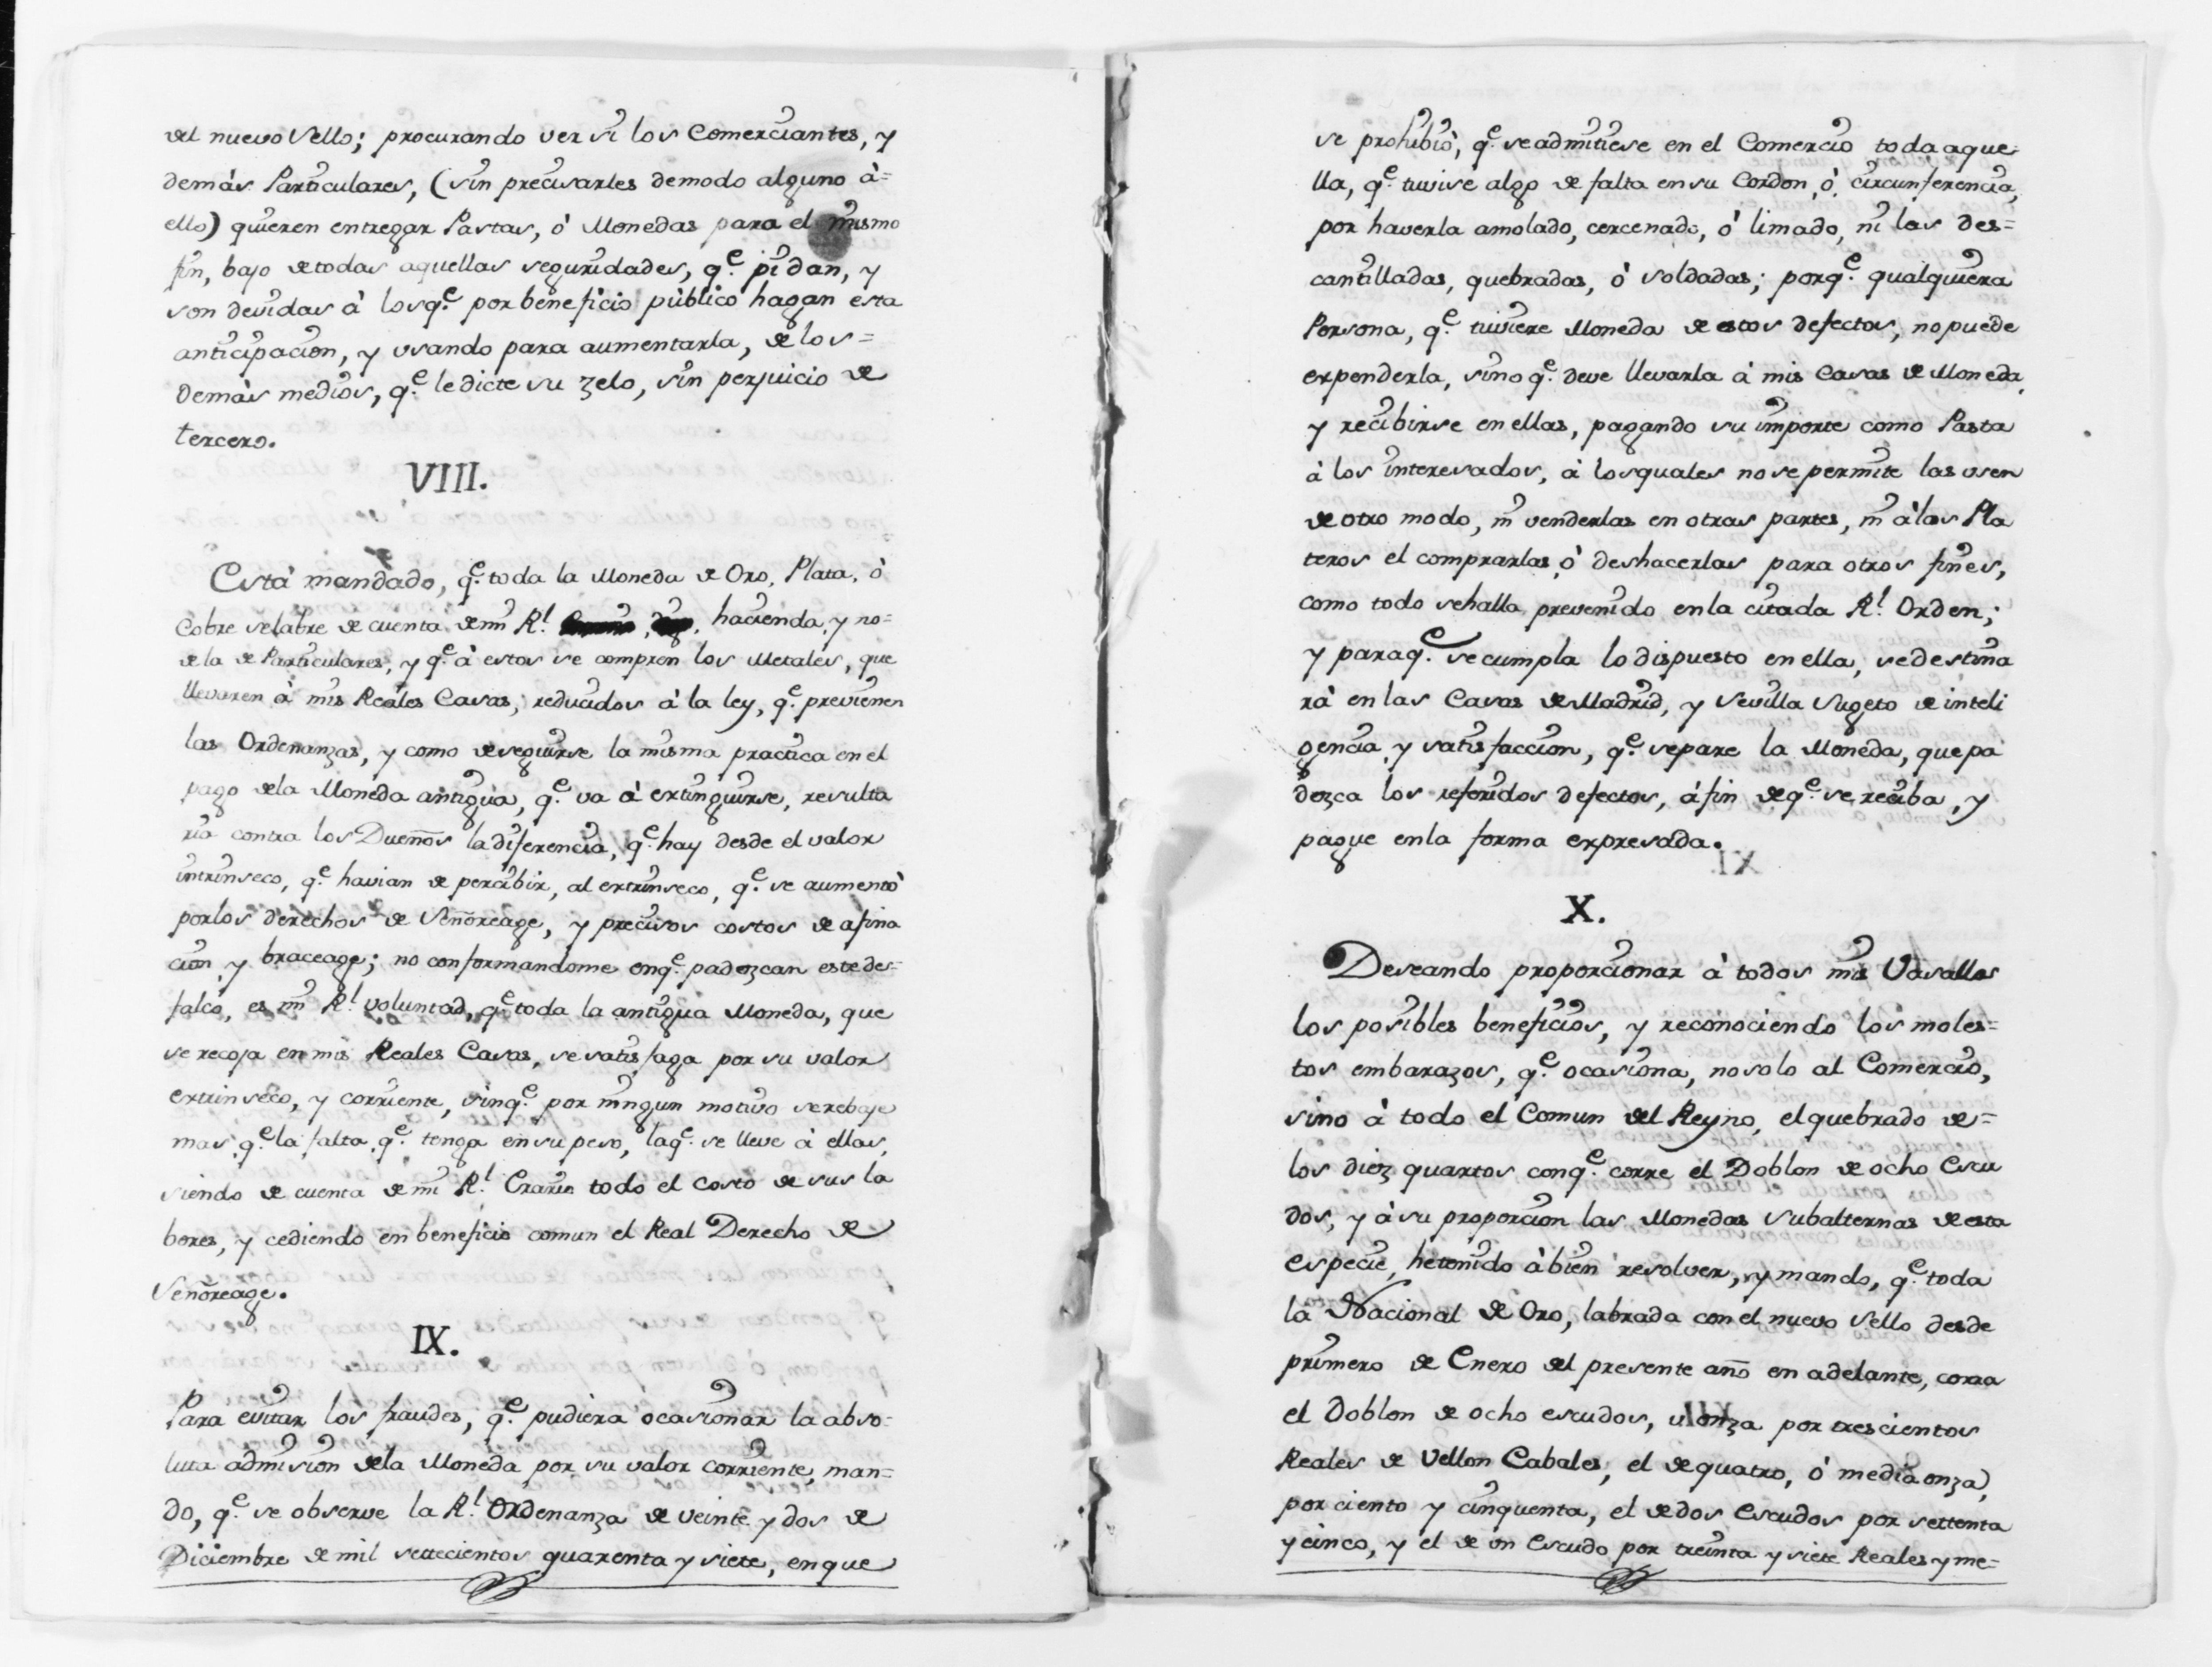 del nuevo Sello; procurando ver si los Comerciantes, y
demás Particulares, (sin precisarles demodo alguno á=
ello) quieren entregar Pastas, ó Monedas para el mismo
fin, bajo de todas aquellas seguridades, q.e pidan, y
son devidas á los q.e por beneficio público hagan esta
anticipacion, y usando para aumentarla, de los=
demás medios, q.e le dicte su zelo, sin perjuicio de
tercero.
VIII.
Está mandado, q.e toda la Moneda de Oro, Plata, ó
Cobre se labre de cuenta de mi R.l hacienda, y no=
de la de Particulares, y q.e á estos se compren los Metales, que
llevaren á mis Reales Casas, reducidos á la ley, q.e previenen
las Ordenanzas, y como de seguirse la misma practica en el
pago dela Moneda antigua, q.e va á extinguirse, resulta
ria contra los Dueños la diferencia, q.e hay desde el valor
intrinseco, q.e havian de percibir, al extrinseco, q.e se aumentó
por los derechos de Señoreage, y precisos costos de afina
cion y braceage; no conformandome en q.e padezcan este des=
falco, es mi R.l voluntad, q.e toda la antigua Moneda, que
se recoja en mis Reales Casas, se satisfaga por su valor
extrinseco, y corriente, sin q.e por ningun motivo se rebaje
mas q.e la falta q.e tenga en su peso, la q.e se lleve á ellas,
siendo de cuenta de mi R.l Erario todo el costo de sus la
bores, y cediendo en beneficio comun el Real Derecho de
Señoreage.
IX.
Para evitar los fraudes, q.e pudiera ocasionar la abso-
luta admision dela Moneda por su valor corriente, man=
do, q.e se observe la R.l Ordenanza de veinte y dos de
Diciembre de mil settecientos quarenta y siete, en que
se prohibió, q.e se admitiese en el Comercio toda aque-
lla, q.e tuvise algo de falta en su Cordon, ó circunferencia,
por haverla amolado, cercenado, ó limado, ni las des=
cantilladas, quebradas, ó soldadas; porq.e qualquiera
Persona, q.e tuviere Moneda de estos defectos, no puede
expenderla, sino q.e deve llevarla á mis Casas de Moneda,
y recibirse en ellas, pagando su importe como Pasta
á los interesados, á los quales no se permite las usen
de otro modo, ni venderlas en otras partes, ni á los Pla
teros el comprarlas, ó deshacerlas para otros fines,
como todo se halla prevenido en la citada R.l Orden;
y para q.e se cumpla lo dispuesto en ella, se destina
rá en las Casas de Madrid, y Sevilla Sugeto de inteli
gencia y satisfaccion, q.e separe la Moneda, que pa
dezca los referidos defectos, á fin de q.e se reciba, y
pague en la forma expresada.
X.
Deseando proporcionar á todos mis Vasallos
los posibles beneficios, y reconociendo los moles=
tos embarazos, q.e ocasiona, no solo al Comercio,
sino á todo el Comun del Reyno, el quebrado de=
los diez quartos con q.e corre el Doblon de ocho Escu
dos, y á su proporcion las Monedas Subalternas de esta
especie, he tenido á bien resolver, y mando, q.e toda
la Nacional de Oro, labrada con el nuevo Sello desde
primero de Enero del presente año en adelante, corra
el Doblon de ocho escudos, u onza por trescientos
Reales de Vellon Cabales, el de quatro, ó media onza,
por ciento y cinquenta, el de dos Escudos por settenta
y cinco, y el de un Escudo por treinta y siete Reales y me=